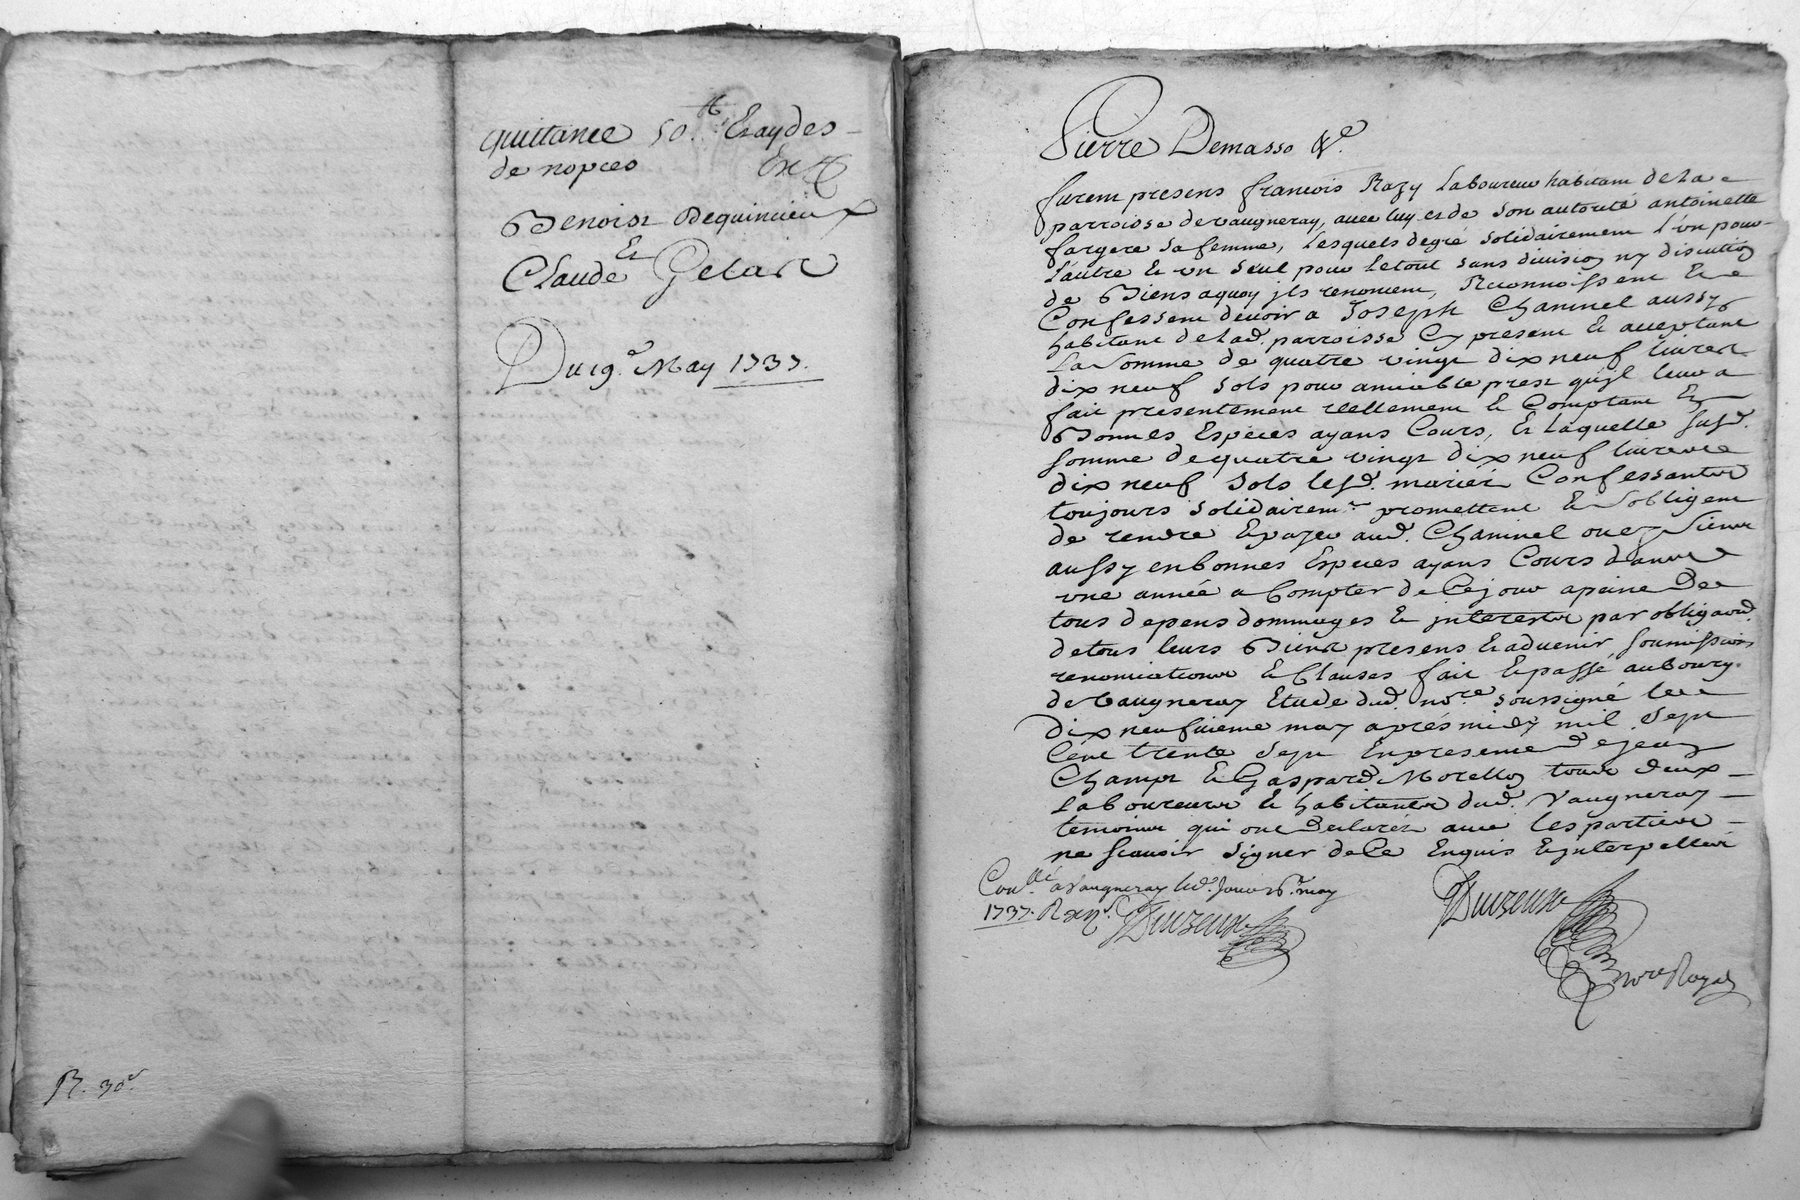 quittance 50.tt Eraydes
de nopces Ex
Benoist Dequincieux
Et
Claude Gelas
Du 19.e May 1737.
R. 30s.
Pierre Demasso &e.
furent presens francois Razy Laboureur habitant de la
parroisse de vaugneray, avec luy et de son autorité antoinette
fargere sa femme, Lesquels degré solidairement l'un pour
l'autre & un seul pour le tout sans division ny discution
de Biens aquoy jls renoncent, Reconnoissent &
Confessent devoir a Joseph Chaninel aussy
habitant de lad. parroisse Cy present & acceptant
La somme de quatre vingt dix neuf livres
dix neuf sols pour amiable prest qu'jl leur a
fait presentement reellement & Comptant En
Bonnes Especes ayans Cours, Et Laquelle susd.
somme de quatre vingt dix neuf livres
dix neuf sols lesd. mariez Confessants
toujours solidairemt. promettent & s'obligent
de rendre Epayer aud. Chaninel ou ez siens
aussy en bonnes Especes ayans Cours dans
une année a Compter de Cejour apeine De
tous depens dommages & jnterests par obligaõn
detous leurs Biens presens & advenir, soumissions
renonciations & Clauses fait & passé aubourg
de Vaugneray Etude dud. nore. soussigné le
dix neufvieme may aprés midy mil sept
Cent trente sept En presence de jean
Champt & Gaspard Morellon tous deux
Laboureurs & habitants dud. Vaugneray
temoins qui ont declaréz avec les parties
ne scavoir signer de Ce Enquis & jnterpellés
Conllé a Vaugneray led. jour 26.e may
1737. R